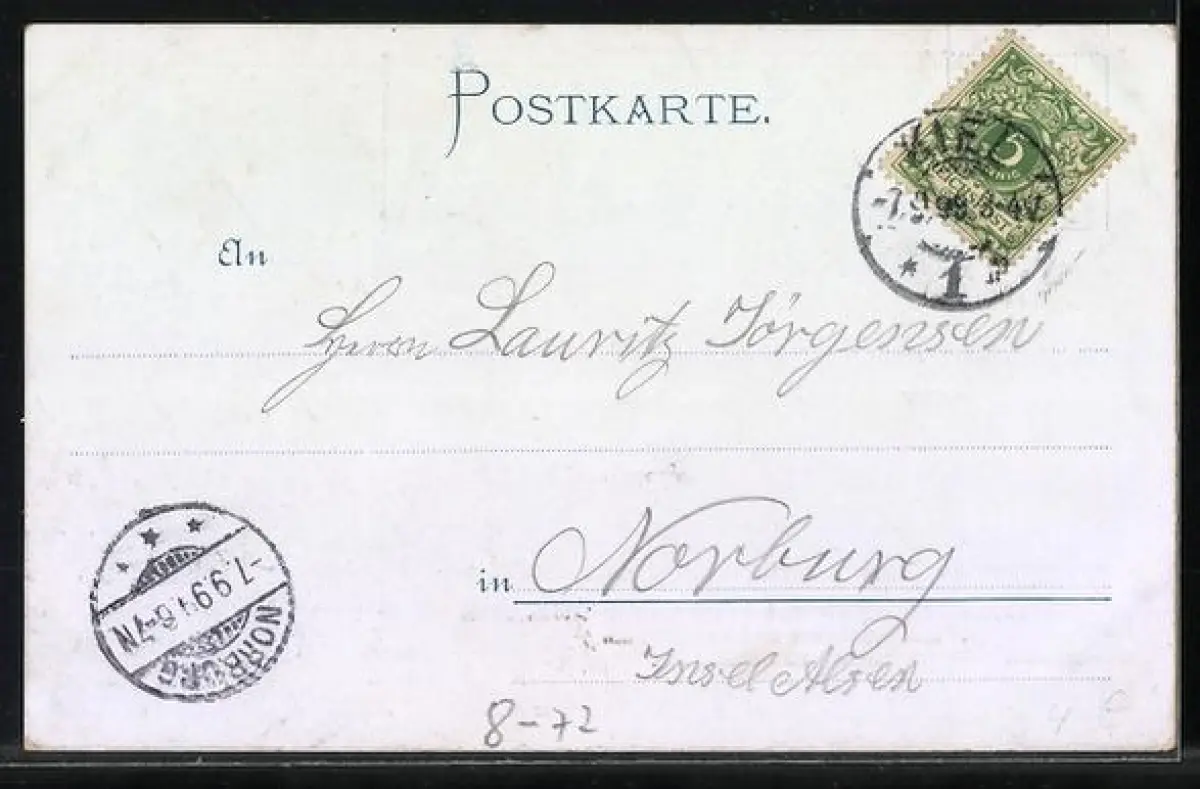 POSTKARTE.
5
KIEL
99 3-4N
1
An
Herrn Lauritz Jörgensen
in Norburg
Insel Alsen
-7.9.99 6-7N
NORBURG
8-72